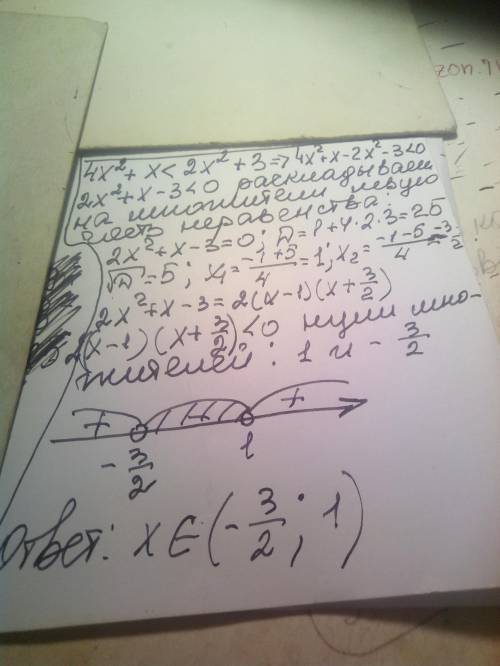 4x² + x < 2x² + 3 => 4x² + x - 2x² - 3 < 0
2x² + x - 3 < 0 раскладываем
на множители левую
часть неравенства:
2x² + x - 3 = 0; D = 1 + 4·2·3 = 25
√D = 5; x₁ = (-1+5)/4 = 1; x₂ = (-1-5)/4 = -3/2
2x² + x - 3 = 2(x-1)(x + 3/2)
2(x-1)(x + 3/2) < 0 нули мно-
жителей: 1 и -3/2
+ +
-3/2 1
Ответ: x ∈ (-3/2; 1)